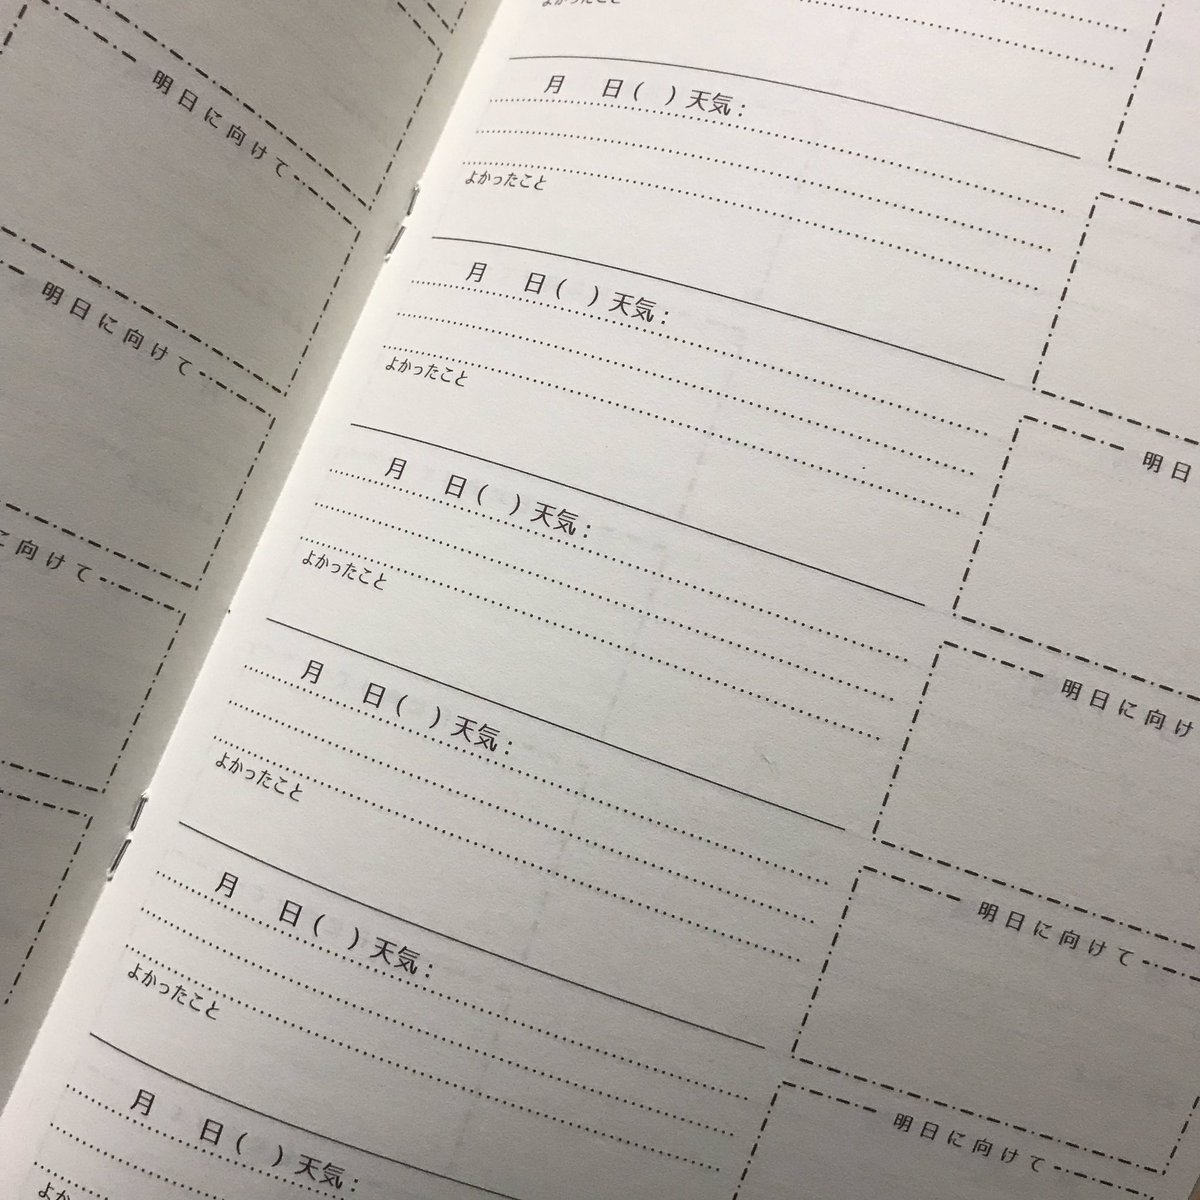 明日に向けて
明日に向けて
に向けて
よかったこと
月 日( )天気:
よかったこと
月 日( )天気:
よかったこと
明日
月 日( )天気:
よかったこと
明日に向け
月 日( )天気:
よかったこと
明日に向けて
月 日( )天気:
よかったこと
明日に向けて
月 日( )天気:
よか